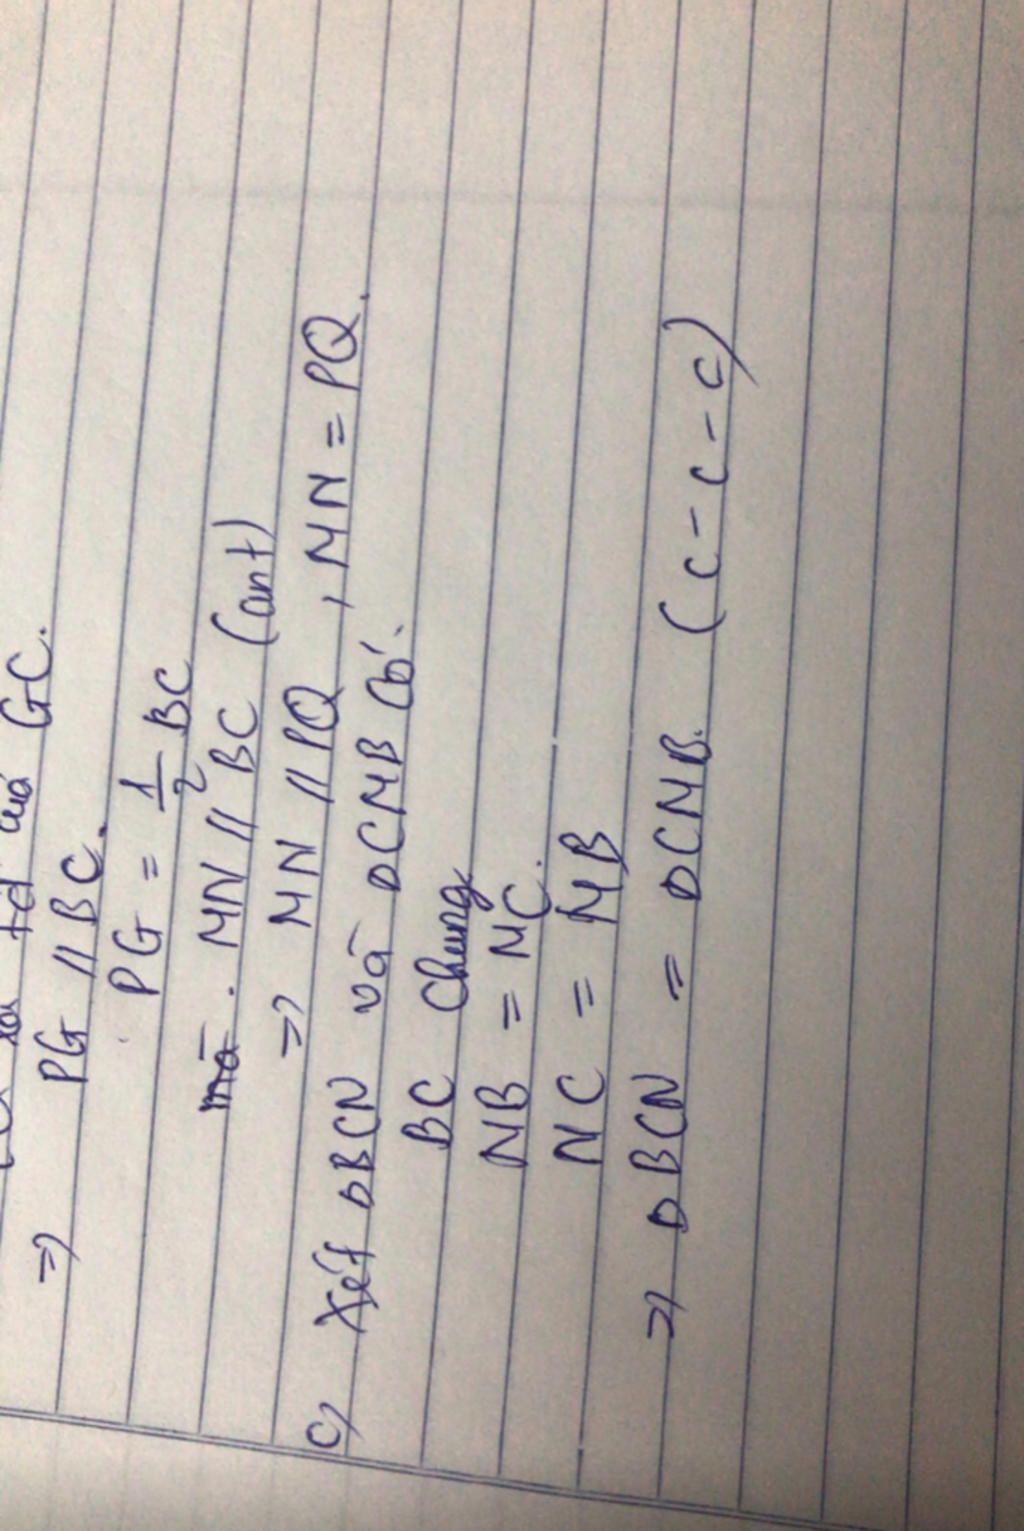 của GC.
=> PG // BC.
PG = 1/2 BC
mà. MN // BC (cmt)
=> MN // PQ, MN = PQ.
c) Xét ΔBCN và ΔCMB có:
BC chung
NB = MC.
NC = MB
=> ΔBCN = ΔCMB. (c-c-c)